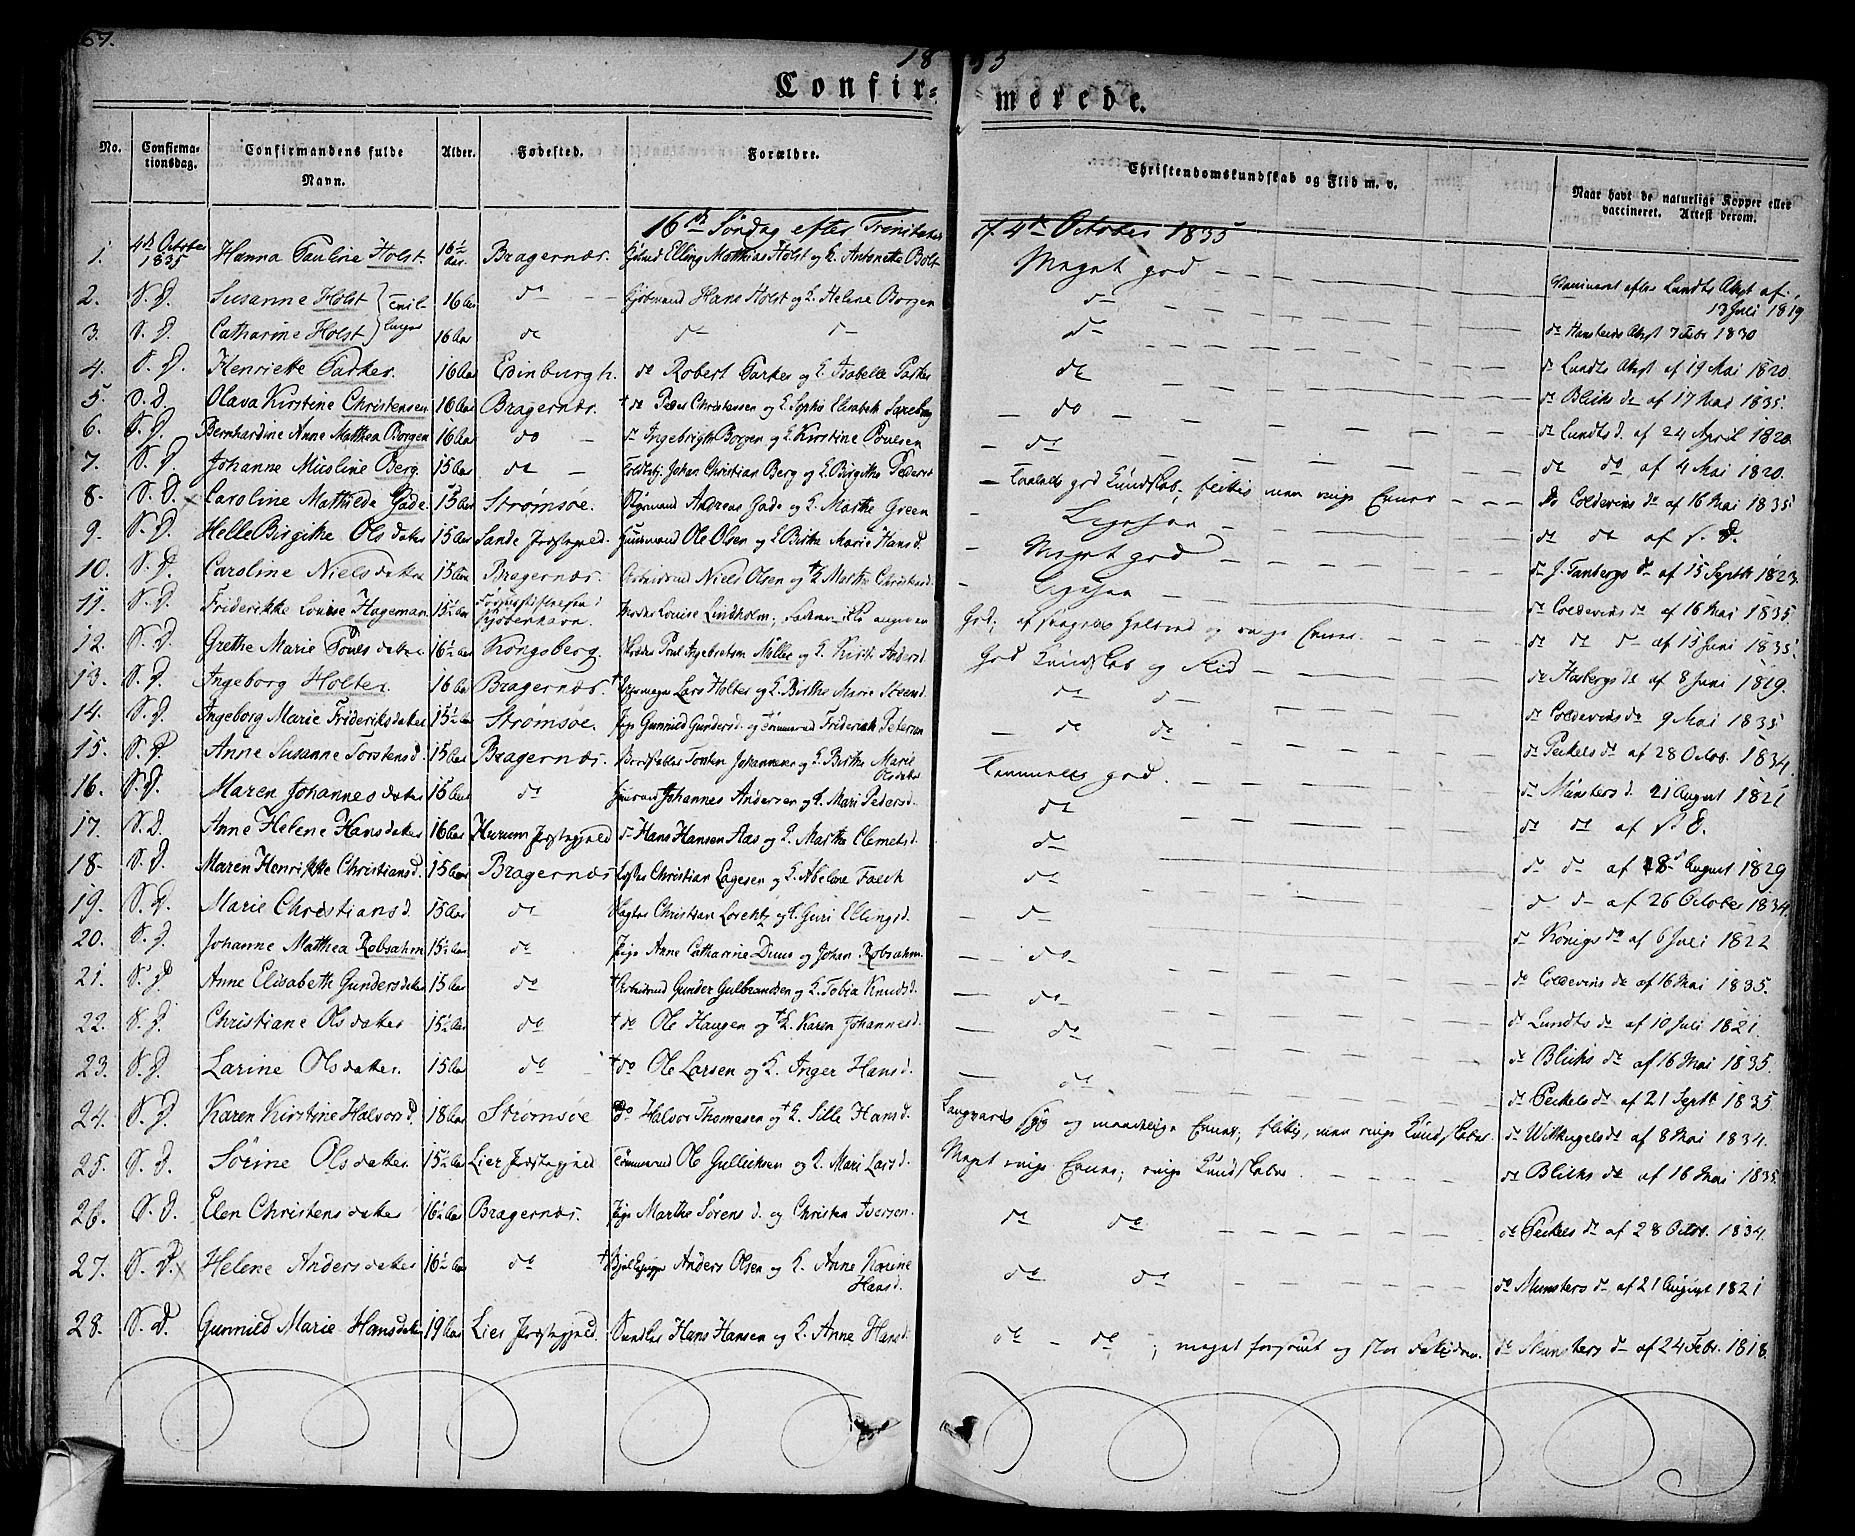 67.
18 35
Confir- merede.
No. Confirma-tionsdag. Confirmandens fulde Navn. Alder. Fødested. Forældre. Christendomskundskab og Flid m. v. Naar havt de naturlige Kopper eller vaccineret. Attest derom.
16de Søndag efter Trinitatis d. 4de October 1835
1. 4de October 1835 Hanna Pauline Holst. 16½ Aar. Bragernæs. Elling Mathias Holst og K. Antonette Bolt Meget god
2. S. D. Susanne Holst 16 Aar do Kjøbmand Hans Holst og K. Helene Borgen do Vaccineret efter Lundts Attest af 13 Juli 1819
3. S. D. Catharine Holst 16 Aar do do do do do Attest 7 Febr 1830
4. S. D. Henriette Parker. 16 Aar Edinburgh. do Robert Parker og K. Isabelle Parker do do Lundts Attest af 19 Mai 1820.
5. S. D. Olava Kirstine Christensen 16 Aar Bragernæs. † do Peder Christensen og K. Sophie Elisabeth do do Blichs do af 17 Mai 1835.
6. S. D. Bernhardine Anne Matthea Borgen 16 Aar do do Ingebrigt Borgen og K. Kirstine Poulsen do do Lundts d. af 24 April 1820.
7. S. D. Johanne Musline Berg. 15 Aar do Johan Christian Berg og K. Birgithe do do af 4 Mai 1820.
8. S. D. Caroline Mathilde Gade 15 Aar Strømsøe. Andreas Gade og K. Marthe Green god Kundskab, flittig men ringe Evner do Coldevins do af 16 Mai 1835
9. S. D. Helle Birgithe Olsdatter 15 Aar Sande Præstegjeld. Huusmand Ole Olsen og K. Birthe Marie Hansd. Ligesaa do do af S. D.
10. S. D. Caroline Nielsdatter 15 Aar Bragernæs. Niels Olsen og † K. Marthe Christensd. Meget god do J. Tanbergs do af 15 Septbr 1823.
11. S. D. Friderikke Louise Hageman 15½ Aar Fødselsstiftelsen i Kjøbenhavn. Moder Louise Lindholm; Faderen ikke angiven Ligesaa do Coldevins do af 16 Mai 1835.
12. S. D. Grethe Marie Poulsdatter 16½ Aar Kongsberg. Poul Ingebretsen Møller og K. Kirsti Andersd. God; og ringe Evner. do do do af 15 Juni 1835.
13. S. D. Ingeborg Holter. 16 Aar Bragernæs. † Lars Holter og K. Birthe Marie God Kundskab og Flid do af 8 Juni 1829.
14. S. D. Ingeborg Marie Frideriksdatter 15½ Aar Strømsøe. Pige Gunnild Gundersd. og Friderich Petersen do do do Coldevins do 9 Mai 1835
15. S. D. Anne Susanne Torstensd. 15 Aar Bragernæs. Johannesen og K. Birthe Marie Olsdatter do do do Peckels do af 28 Octob. 1834.
16. S. D. Maren Johannesdatter 15 Aar do Johannes Andersen og K. Mari Pedersd. Temmelig god. do Münsters d. 21 August 1821
17. S. D. Anne Helene Hansdatter 16 Aar Hurum Præstegjeld do Hans Hansen Aas og K. Marthe Clemetsd. do do do af S. D.
18. S. D. Maren Henrikke Christiansd. 15 Aar Bragernæs Christian Lagesen og K. Abelone Falch do do do af 28 August 1829
19. S. D. Marie Christiansd. 15 Aar do Christian Lorentz og K. Guri Ellingsd. do do do af 26 October 1834.
20. S. D. Johanne Matthea Robsahm 15½ Aar do Pige Anne Catharine Duus og Johan Robsahm. do do Königs do af 6 Juli 1822
21. S. D. Anne Elisabeth Gundersdatter 15 Aar do † Gunder Gulbrandsen og K. Tobia Knudsd. do do Coldevins do af 16 Mai 1835.
22. S. D. Christiane Olsdatter 15½ Aar do † do Ole Haugen og † K. Karen Johannesd. do do Lundts do af 10 Juli 1821.
23. S. D. Larine Olsdatter. 15 Aar do † do Ole Larsen og K. Inger Hansd. do do Blichs do af 16 Mai 1835.
24. S. D. Karen Kirstine Halvorsd. 18 Aar Strømsøe do Halvor Thomesen og † K. Sille Hansd. Langvarig Syge og maadelige Evner; flittig, men ringe Kundskaber. do Peckels do af 21 Septb 1835
25. S. D. Sørine Olsdatter 15½ Aar Lier Præstegjeld Ole Gulliksen og K. Mari Larsd. Meget ringe Evner; ringe Kundskaber. do af 8 Mai 1834.
do Blichs do af 16 Mai 1835.
26. S. D. Elen Christensdatter 16½ Aar Bragernæs. Pige Marthe Sørensd. og Christen Iversen. do do do Peckels do af 28 Octbr. 1834.
27. S. D. Helene Andersdatter 16½ Aar do † Anders Olsen og K. Anne Karine Hansd. do do do Munsters do af 21 August 1821
28. S. D. Gunnild Marie Hansdatter 19 Aar Lier Præstegjeld. Hans Hansen og K. Anne Hansd. do do; meget forsømt og stor do Munsters do af 24 Febr. 1818.